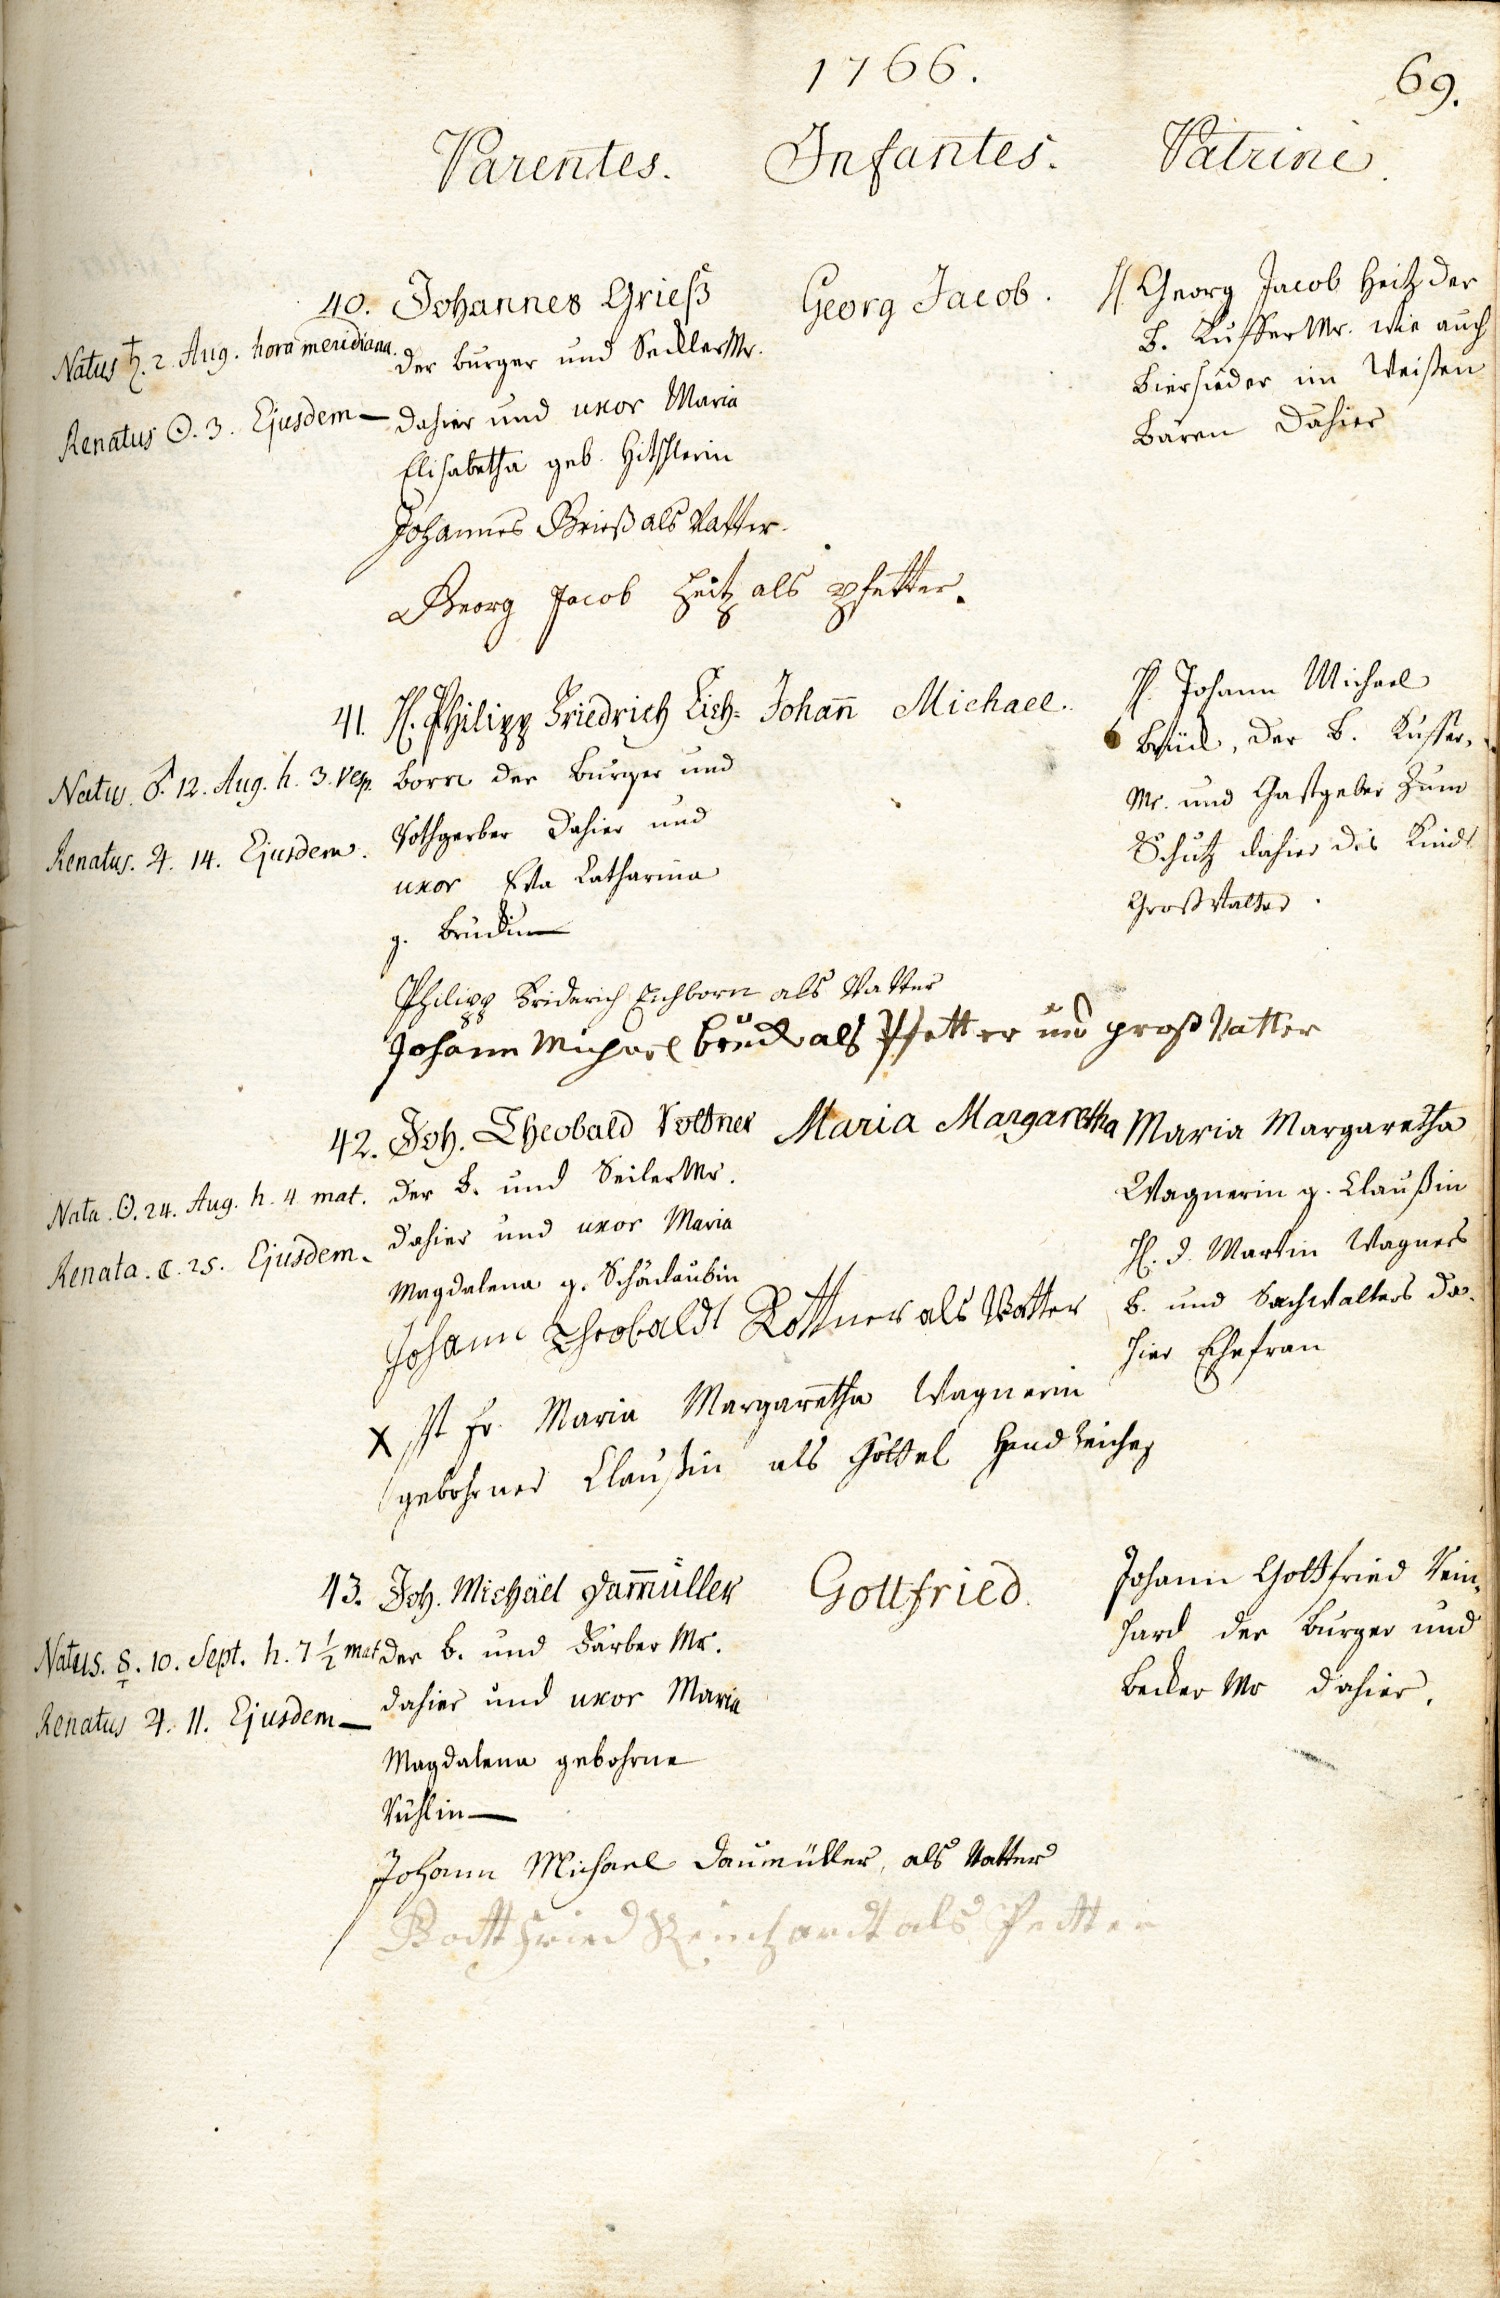 1766.
69.
Parentes. Infantes. Patrini.
40. Johannes Grieß
der Burger und Seckler Mr.
dahier und uxor Maria
Elisabetha geb. Hitschlerin
Natus ♄. 2. Aug. hora meridiana.
Renatus ☉. 3. Ejusdem —
Georg Jacob.
H. Georg Jacob Heitz der
B. Kuffer Mr. wie auch
Biersieder im Weißen
Bären dahier
Johannes Grieß als Vatter.
Georg Jacob Heitz als Pfetter.
41. H. Philipp Friedrich Eich-
born der Burger und
Rothgerber dahier und
uxor Eva Catharina
g. Brückin —
Natus. ♂. 12. Aug. h. 3. Vesp.
Renatus. ♃. 14. Ejusdem.
Johañ Michael.
H. Johann Michael
Brück, der B. Kuffer-
Mr. und Gastgeber zum
Schutz dahier des Kinds
Großvatter.
Philipp Friderich Eichborn als Vatter
Johann Michael Brück als Pfetter und groß Vatter
42. Joh. Theobald Rottner
der B. und Seiler Mr.
dahier und uxor Maria
Magdalena g.
Nata. ☉. 24. Aug. h. 4 mat.
Renata. ☾. 25. Ejusdem.
Maria Margaretha
Maria Margaretha
Wagnerin g. Claußin
H. d. Martin Wagners
B. und Sachwalters da-
hier Ehefrau
Johann Theobaldt Rottner als Vatter
X ist Fr. Maria Margaretha Wagnerin
gebohrner Claußin als Göttel Handzeichen
43. Joh. Michael Daum̃üller
der B. und Färber Mr.
dahier und uxor Maria
Magdalena gebohrne
Rühlin —
Natus. ☿. 10. Sept. h. 7 ½ mat
Renatus ♃. 11. Ejusdem —
Gottfried.
Johann Gottfried Rein-
hard der Burger und
Becker Mr dahier.
Johann Michael Daumüller, als Vatter
Gottfried Reinhardt als Petter